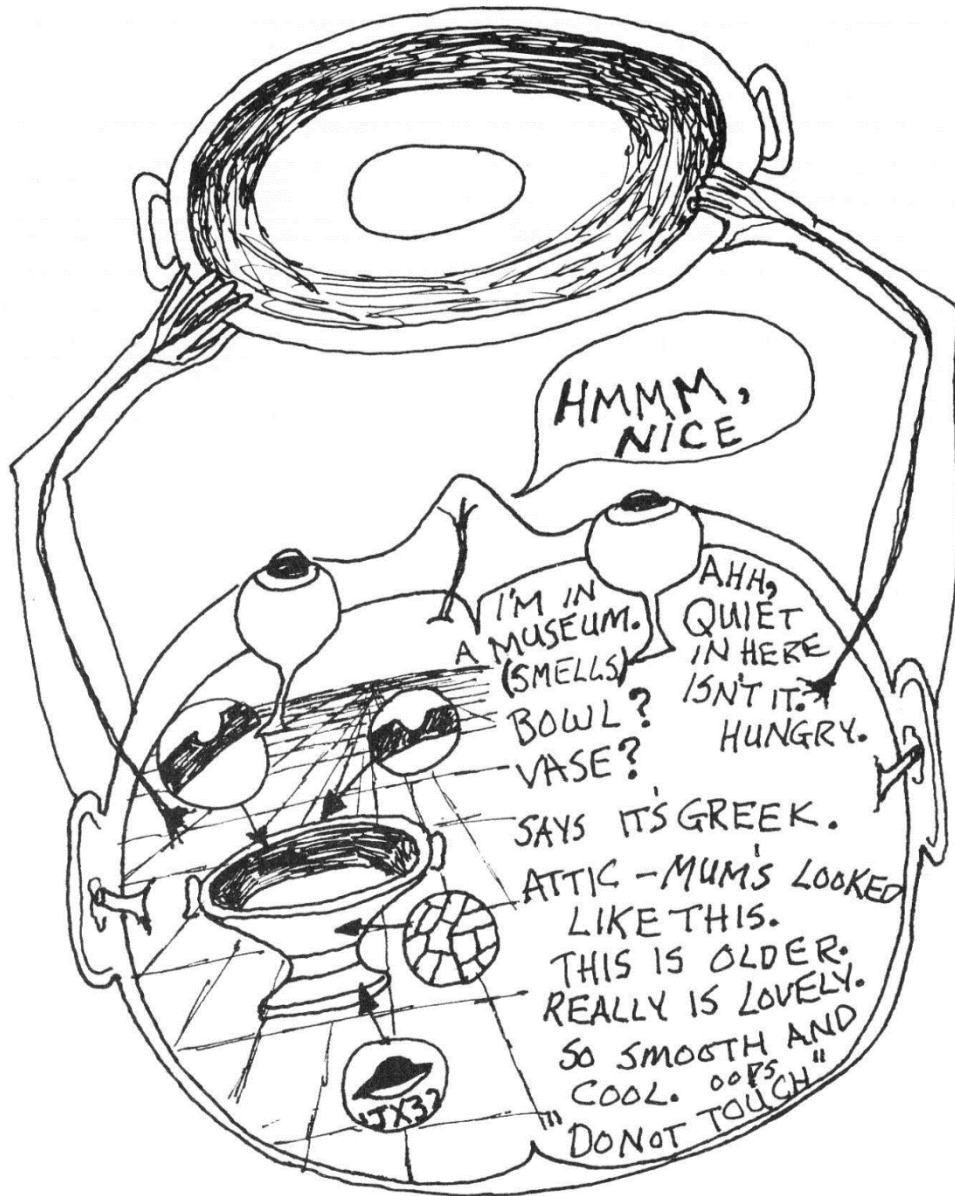 HMMM,
NICE
I'M IN
A MUSEUM.
(SMELLS)
BOWL?
VASE?
AHH,
QUIET
IN HERE
ISN'T IT?
HUNGRY.
SAYS IT'S GREEK.
ATTIC – MUM'S LOOKED
LIKE THIS.
THIS IS OLDER.
REALLY IS LOVELY.
SO SMOOTH AND
COOL. OOPS
"DO NOT TOUCH"